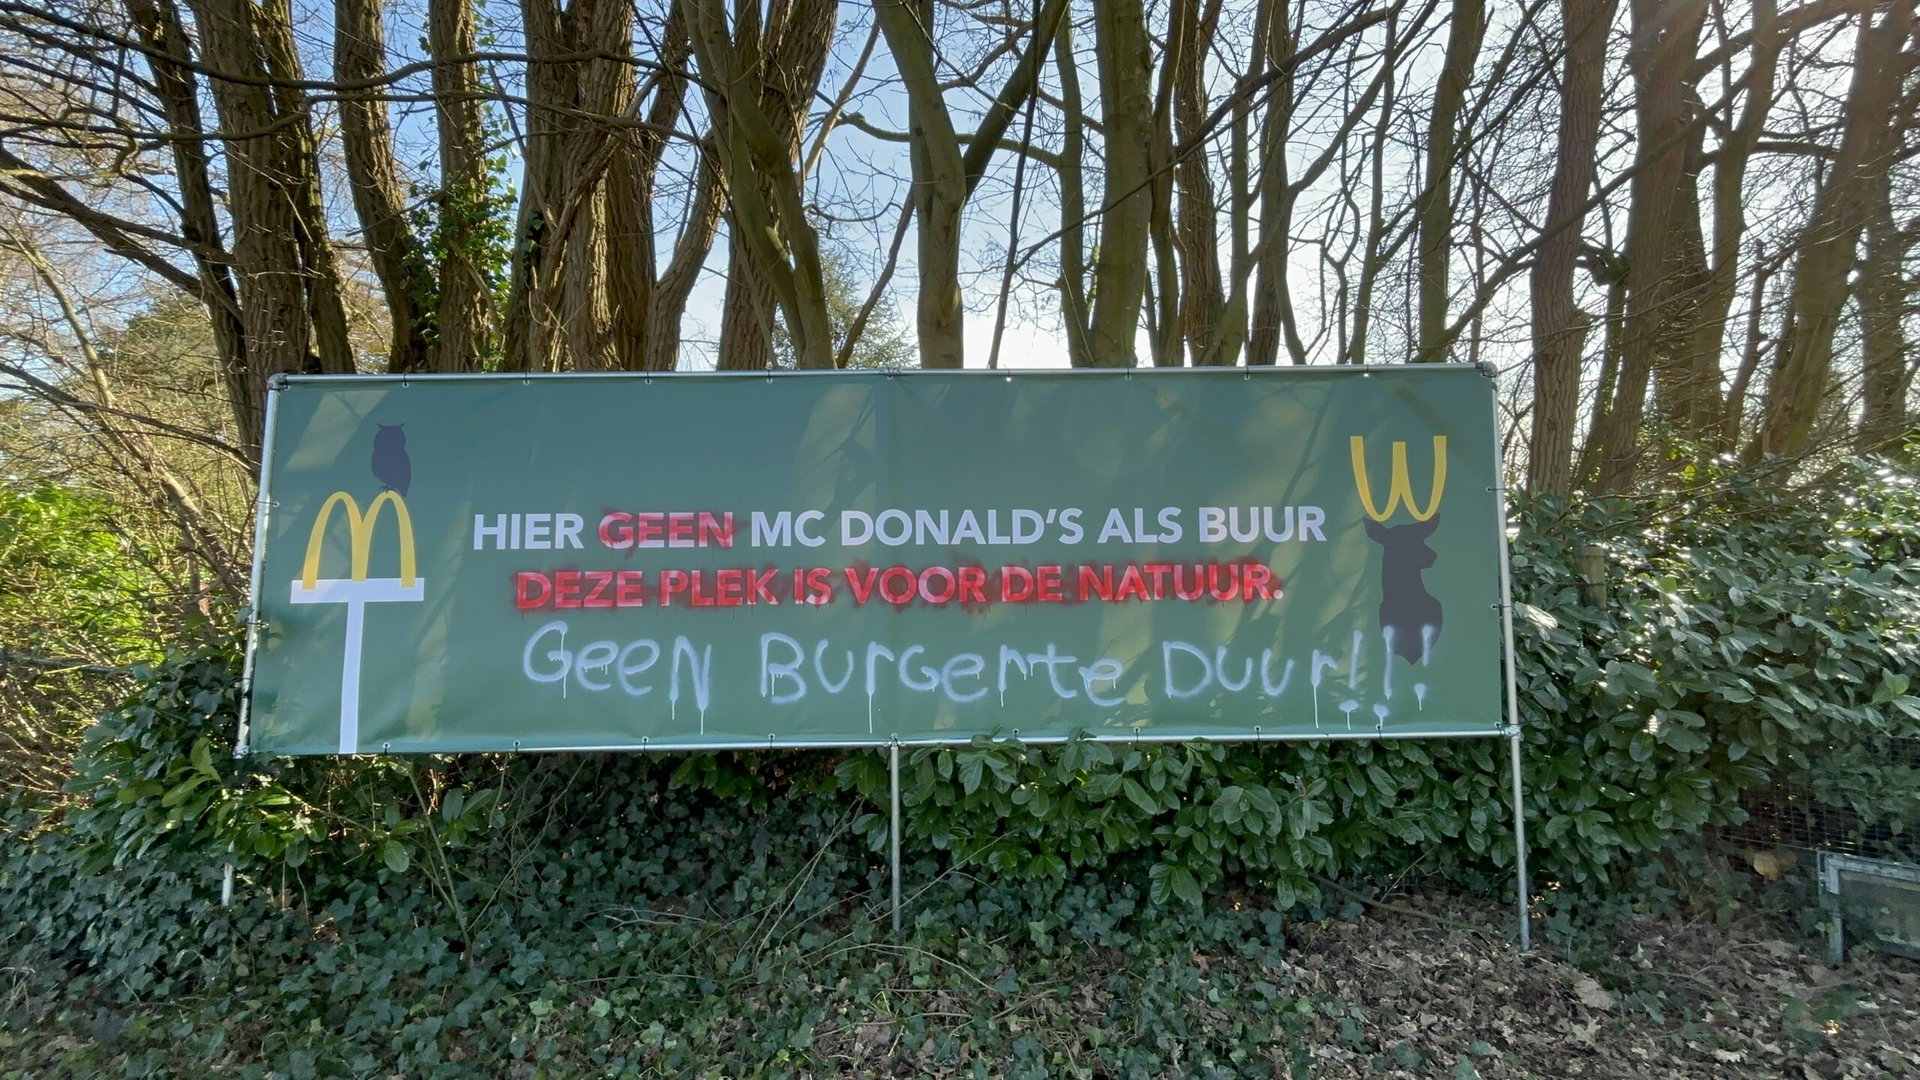 HIER GEEN MC DONALD'S ALS BUUR
DEZE PLEK IS VOOR DE NATUUR.
GeeN Burgerte Duur!!!